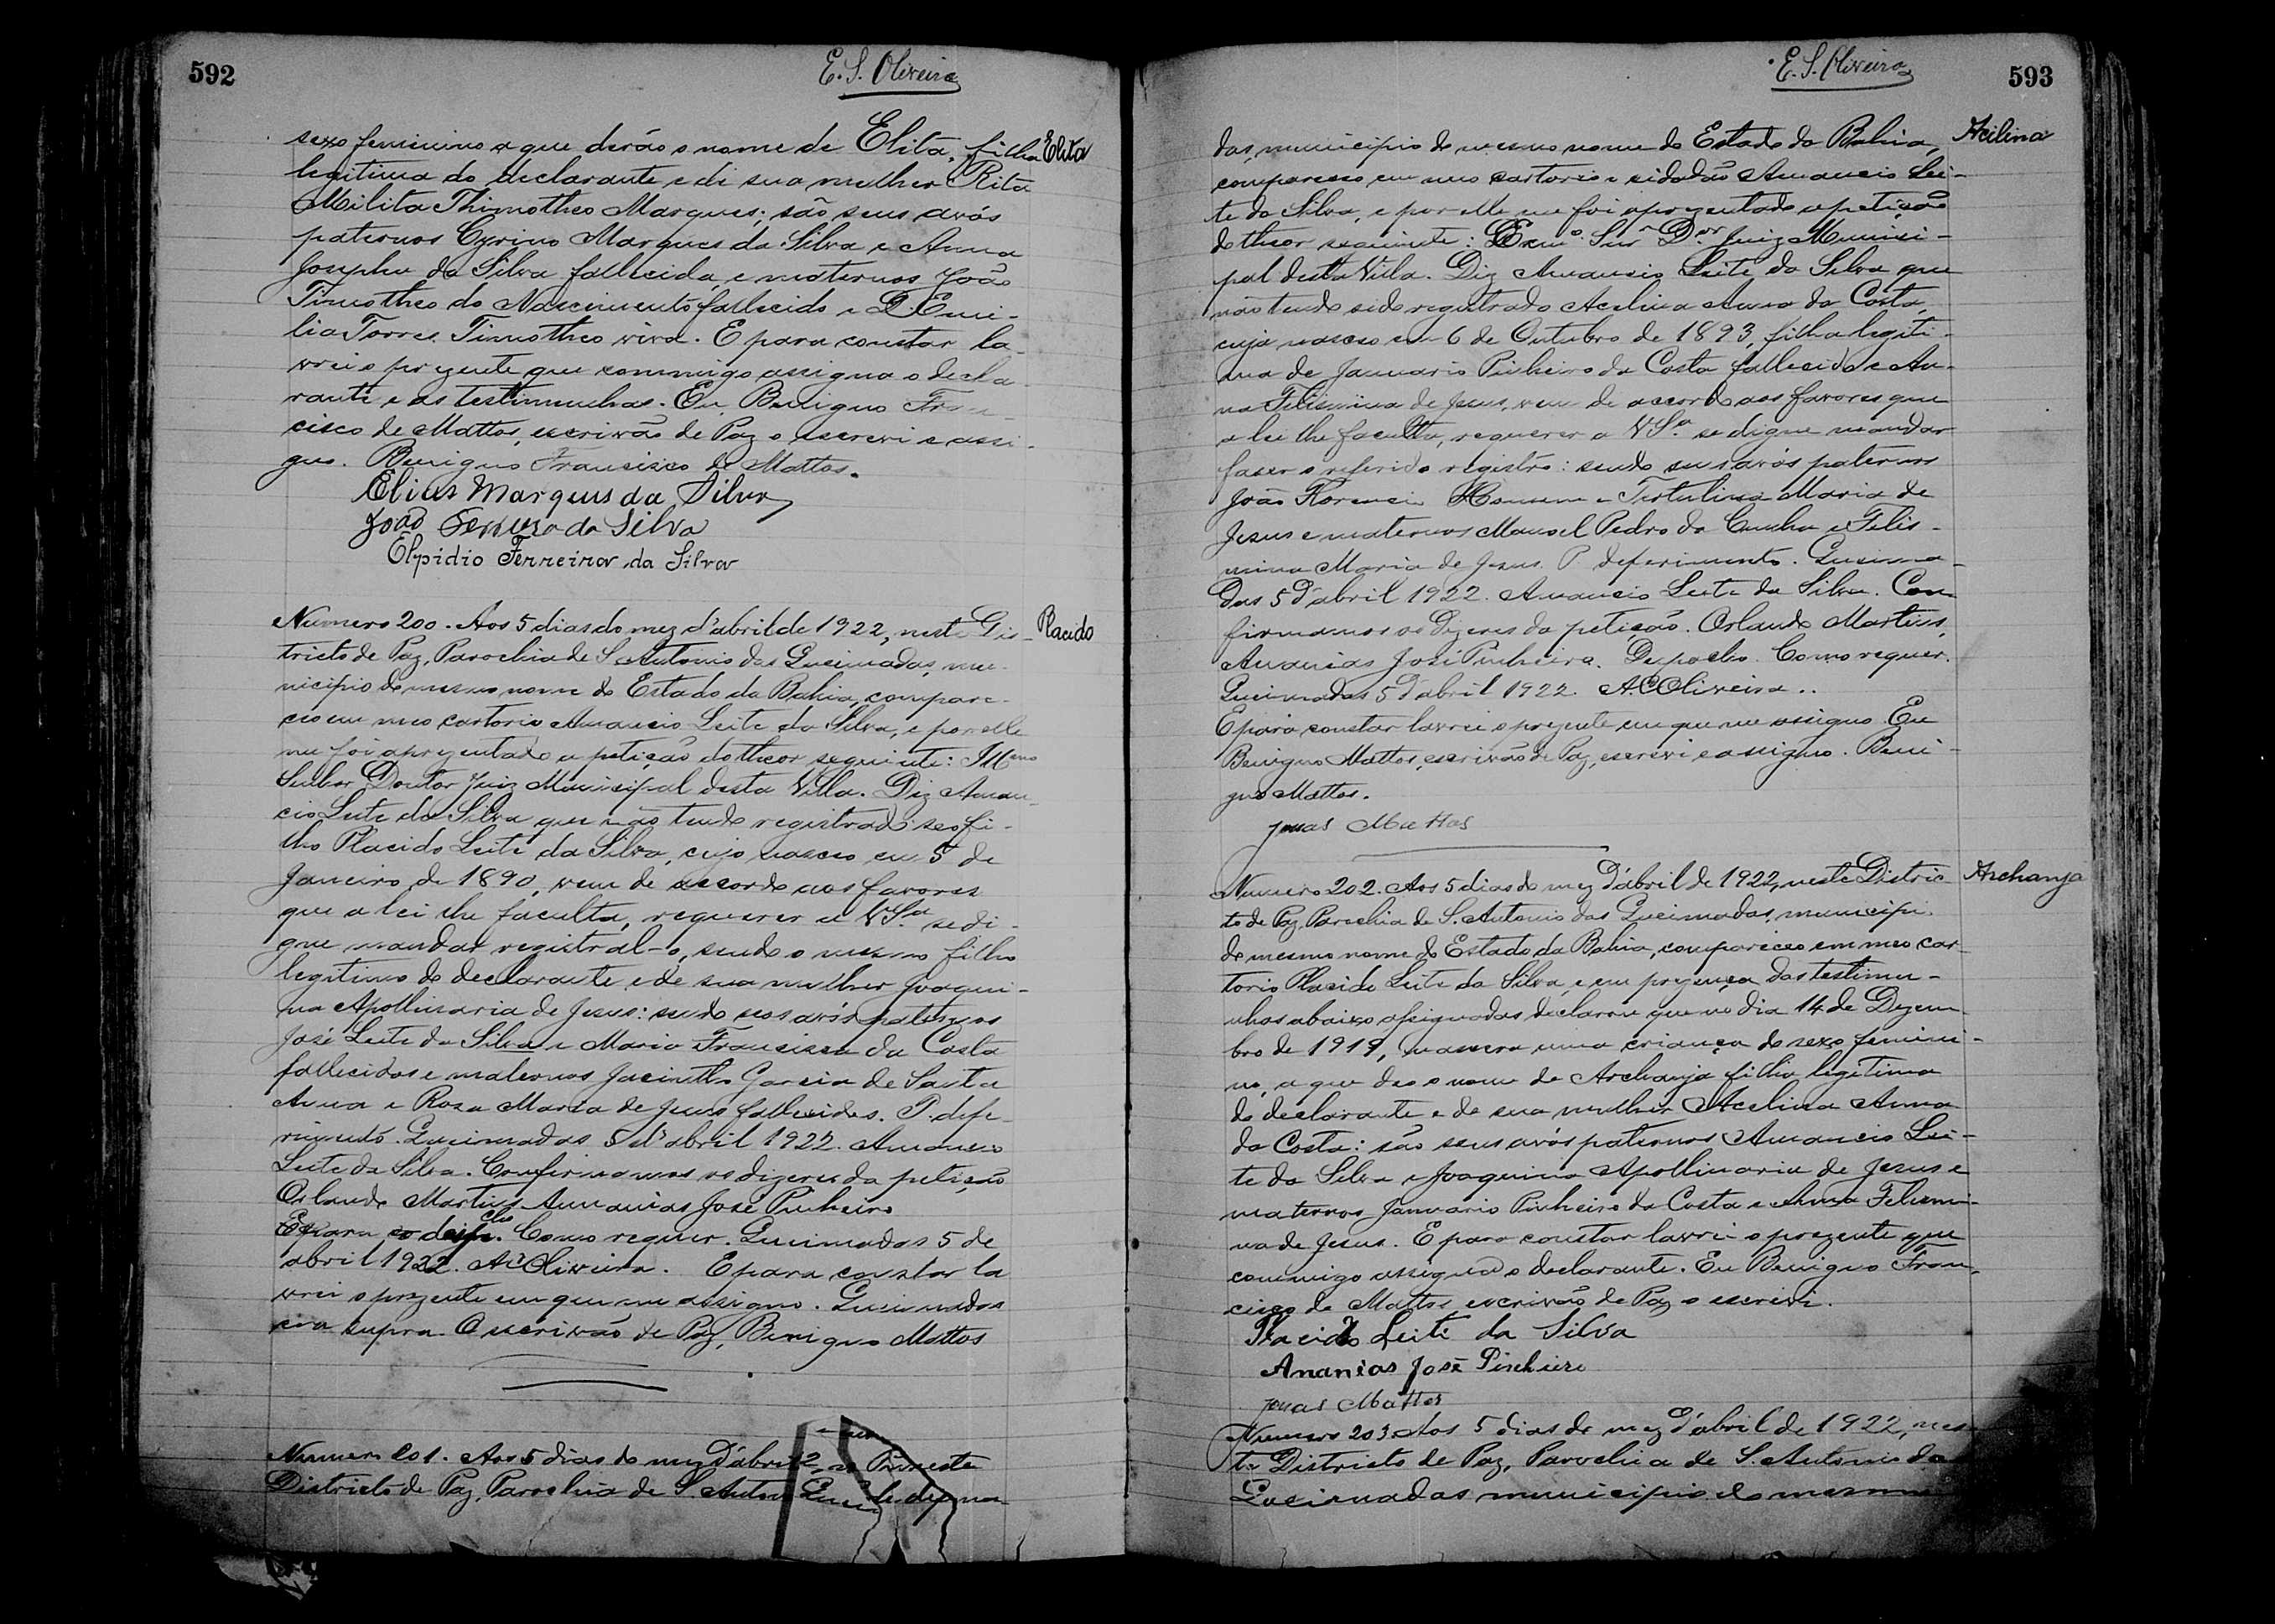 592
E. S. Oliveira
sexo feminino a que derão o nome de Elita, filha
Elita
legitima do declarante e di sua mulher Rita
Milita Thimotheo Marques; são seus avós
paternos Cyrino Marques da Silva e Anna
Josepha da Silva fallecida, e maternos João
Timotheo do Nascimento fallecido e D. Emi-
lia Torres Timotheo viva. E para constar la-
vrei o prezente que commigo assigna o decla-
rante e as testimunhas. Eu Benigno Fran-
cisco de Mattos, escrivão de Paz o escrevi e assi-
gno. Benigno Francisco de Mattos.
Elias Marques da Silva
João Ferreira da Silva
Elpidio Ferreira da Silva
Numero 200. Aos 5 dias do mez d'abril de 1922, neste Dis-
Placido
tricto de Paz, Parochia de S. Antonio das Queimadas, mu-
nicipio do mesmo nome do Estado da Bahia, compare-
ceo em meo cartorio Amancio Leite da Silva, e por elle
me foi aprezentado a petição do theor seguinte: Illmo
Senhor Doutor Juiz Municipal desta Villa. Diz Aman-
cio Leite da Silva que não tendo registrado seo fi-
lho Placido Leite da Silva, cujo nasceo em 5 de
Janeiro de 1890, vem de accordo aos favores
que a lei lhe faculta, requerer a V Sa. se di-
gne mandar registral-o, sendo o mesmo filho
legitimo do declarante e de sua mulher Joaqui-
na Apollinaria de Jesus: sendo seos avós paternos
José Leite da Silva e Maria Francisca da Costa
fallecidos e maternos Jacintho Garcia de Santa
Anna e Roza Maria de Jesus fallecidos. P. defe-
rimento. Queimadas 5 d'abril 1922. Amancio
Leite da Silva. Confirmamos os dizeres da petição
Orlando Martins Ananias José Pinheiro
Epara o desp.cho Como requer. Queimadas 5 de
abril 1922. A. C. Oliveira. E para constar la
vrei o prezente em que me assigno. Queimadas
era supra. O escrivão de Paz, Benigno Mattos
Numero 201. Aos 5 dias do mez d'abril neste
Districto de Paz, Parochia de S. Antonio
E. S. Oliveira
593
das, municipio do mesmo nome do Estado da Bahia,
Acilina
compareceo em meo cartorio o cidadão Amancio Lei-
te da Silva, e por elle me foi aprezentado a petição
do theor seguinte: Exmo. Snr. Dor. Juiz Munici-
pal desta Villa. Diz Amancio Leite da Silva que
não tendo sido registrado Acelina Anna da Costa,
cuja nasceo em 6 de Outubro de 1893, filha legiti-
ma de Januario Pinheiro da Costa fallecido e An-
na Felismina de Jesus, vem de accordo aos favores que
a lei lhe faculta, requerer a V Sa. se digne mandar
fazer o referido registro: sendo seus avós paternos
João Homem e Tertulina Maria de
Jesus e maternos Manoel Pedro da Cunha e Felis-
mina Maria de Jesus. P. deferimento. Queima-
das 5 d'abril 1922. Amancio Leite da Silva. Con-
firmamos os dizeres da petição. Orlando Martins,
Ananias José Pinheiro. Depacho. Como requer.
Queimadas 5 d'abril 1922. A. C. Oliveira..
E para constar lavrei o prezente em que me assigno. Eu
Benigno Mattos, escrivão de Paz, escrevi e assigno. Beni-
gno Mattos.
Jonas Mattos
Numero 202. Aos 5 dias do mez d'abril de 1922, neste Distric-
Archanja
to de Paz, Parochia de S. Antonio das Queimadas, municipio
do mesmo nome do Estado da Bahia, compareceo em meo car-
torio Placido Leite da Silva, e em prezença das testimu-
nhas abaixo assignadas declarou que no dia 14 de Dezem-
bro de 1919, nascera uma criança do sexo femini-
no, a que deo o nome de Archanja filha legitima
do declarante e de sua mulher Acelina Anna
da Costa: são seus avós paternos Amancio Lei-
te da Silva e Joaquina Apollinaria de Jesus e
maternos Januario Pinheiro da Costa e Anna Felismi-
na de Jesus. E para constar lavrei o prezente que
commigo assigna o declarante. Eu Benigno Fran-
cisco de Mattos escrivão de Paz o escrevi.
Placido Leite da Silva
Ananias José Pinheiro
Jonas Mattos
Numero 203. Aos 5 dias do mez d'abril de 1922, nes-
te Districto de Paz, Parochia de S. Antonio da
Queimadas municipio do mesmo